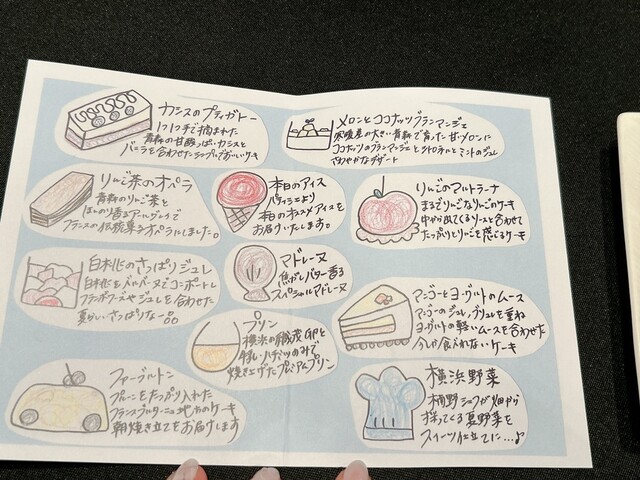 カシスのプティガトー
1つ1つ手で摘まれた
青森の甘酸っぱいカシスと
バニラを合わせたシンプルでおいしいケーキ
メロンとココナッツブランマンジェ
寒暖差の大きい青森で育った甘いメロンに
ココナッツのブランマンジェと
ミントのジュレ
さわやかなデザート
りんご茶のオペラ
青森のりんご茶と
ほんのり香るアールグレイで
フランスの伝統菓子オペラにしました。
本日のアイス
パティシエより
本日のオススメアイスを
お届けいたします。
りんごのマルトラーナ
まるでりんごなりんごのケーキ
中から出てくるソースと合わせて
たっぷりとりんごを感じるケーキ
白桃のさっぱりジュレ
白桃をバーベンヌでコンポートし
フランボワーズやジュレを合わせた
夏らしいさっぱりな一品
マドレーヌ
焦がしバター香る
スペシャルマドレーヌ
プリン
横浜の卵と
のみで
焼き上げたプレミアムプリン
マンゴーとヨーグルトのムース
マンゴーのジュレ、ブリュレを重ね
ヨーグルトの軽いムースを合わせた
今しか食べれないケーキ
ファーブルトン
プルーンをたっぷり入れた
フランスブルターニュ地方のケーキ
朝焼き立てをお届けします
横浜野菜
シェフが畑から
採ってくる夏野菜を
スイーツ仕立てに…♪